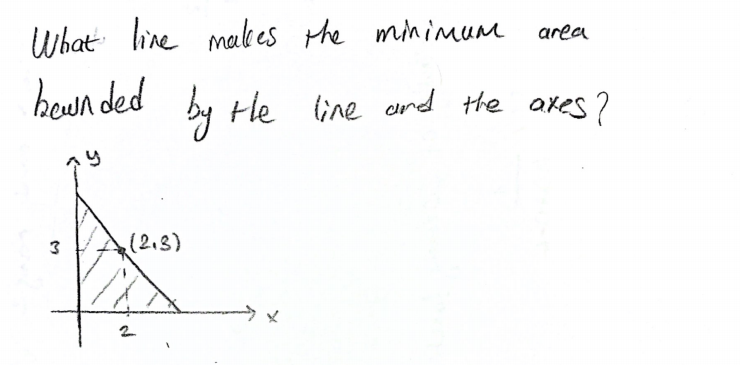 What line makes the minimum area
bounded by the line and the axes?
y
3
(2,3)
x
2